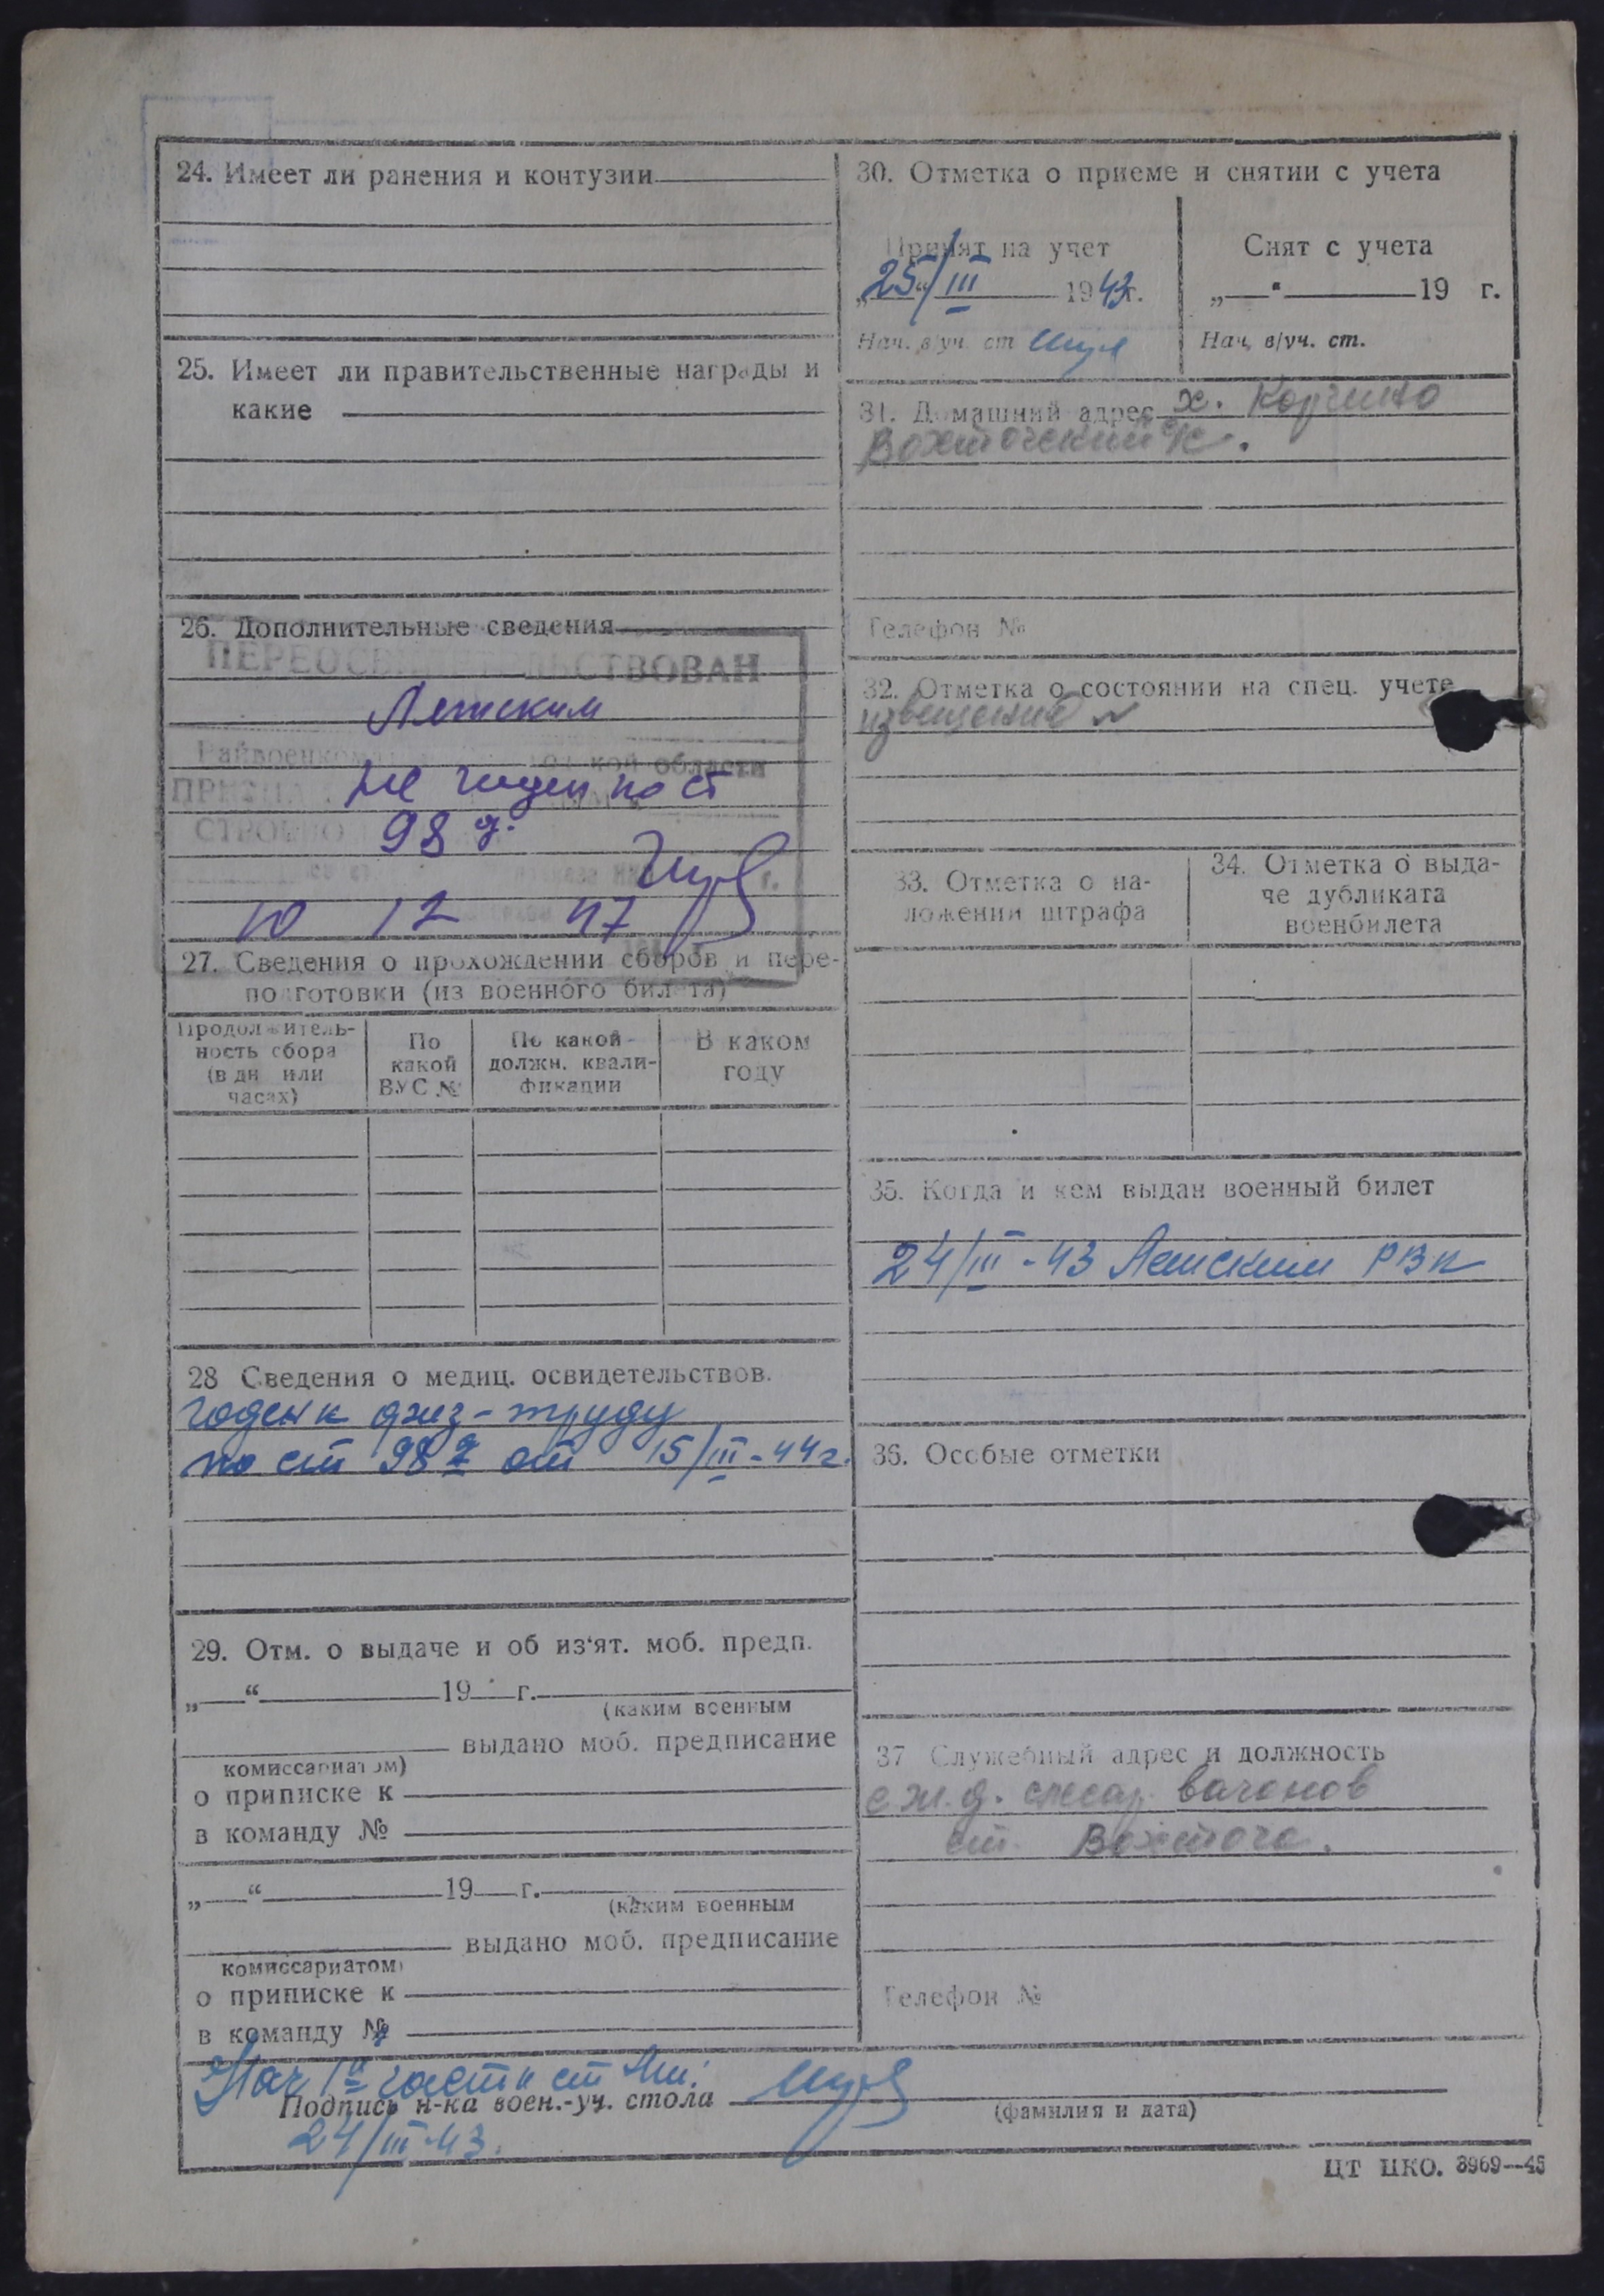 24. Имеет ли ранения и контузии
25. Имеет ли правительственные награды и
какие
26. Дополнительные сведения
ПЕРЕОСВИДЕТЕЛЬСТВОВАН
Летским
Райвоенком кой области
не годен по ст
98 г.
10 12 47
27. Сведения о прохождении сборов и пере-
подготовки (из военного билета)
Продолжитель-
ность сбора
(в дн или
часах)
По
какой
ВУС №
По какой
должн. квали-
фикации
В каком
году
28 Сведения о медиц. освидетельствов.
годен к физ-труду
по ст 98 г от 15/III-44г.
29. Отм. о выдаче и об из'ят. моб. предп.
„ “ 19 г.
(каким военным
выдано моб. предписание
комиссариатом)
о приписке к
в команду №
„ “ 19 г.
(каким военным
выдано моб. предписание
комиссариатом)
о приписке к
в команду №
30. Отметка о приеме и снятии с учета
Принят на учет
„25“/III 1943г.
Нач. в/уч. ст
Снят с учета
„ “ 19 г.
Нач. в/уч. ст.
31. Домашний адрес х.
Вохтожский с/с.
Телефон №
32. Отметка о состоянии на спец. учете
извещение
33. Отметка о на-
ложении штрафа
34. Отметка о выда-
че дубликата
военбилета
35. Когда и кем выдан военный билет
24/III-43 Летским РВК
36. Особые отметки
37 Служебный адрес и должность
с ж.д. слесар. вагонов
ст. Вохтога.
Телефон №
Нач 1й части ст
Подпись н-ка воен.-уч. стола
(фамилия и дата)
24/III-43.
ЦТ ЦКО. 3969—45